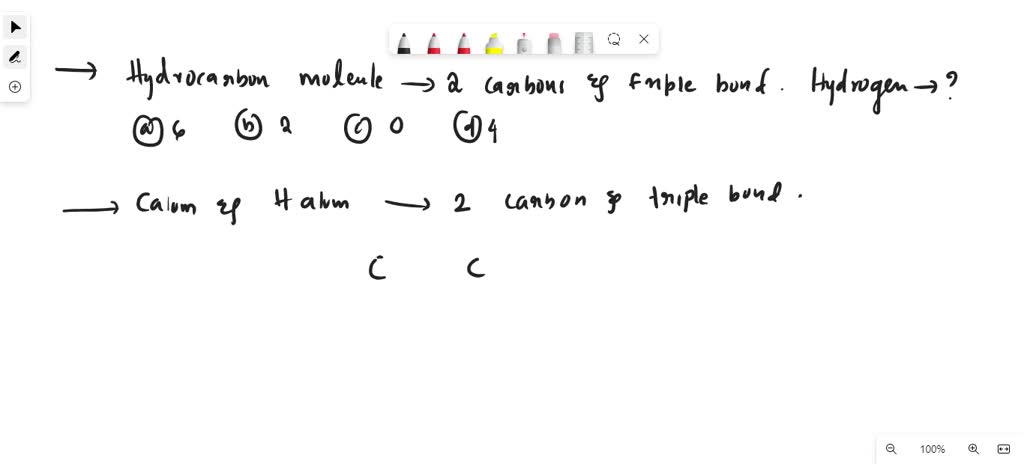 → Hydrocarbon molecule → 2 carbons & triple bond. Hydrogen → ?
(a) 6 (b) 2 (c) 0 (d) 4
→ C atom & H atom → 2 carbon & triple bond.
C C
100%